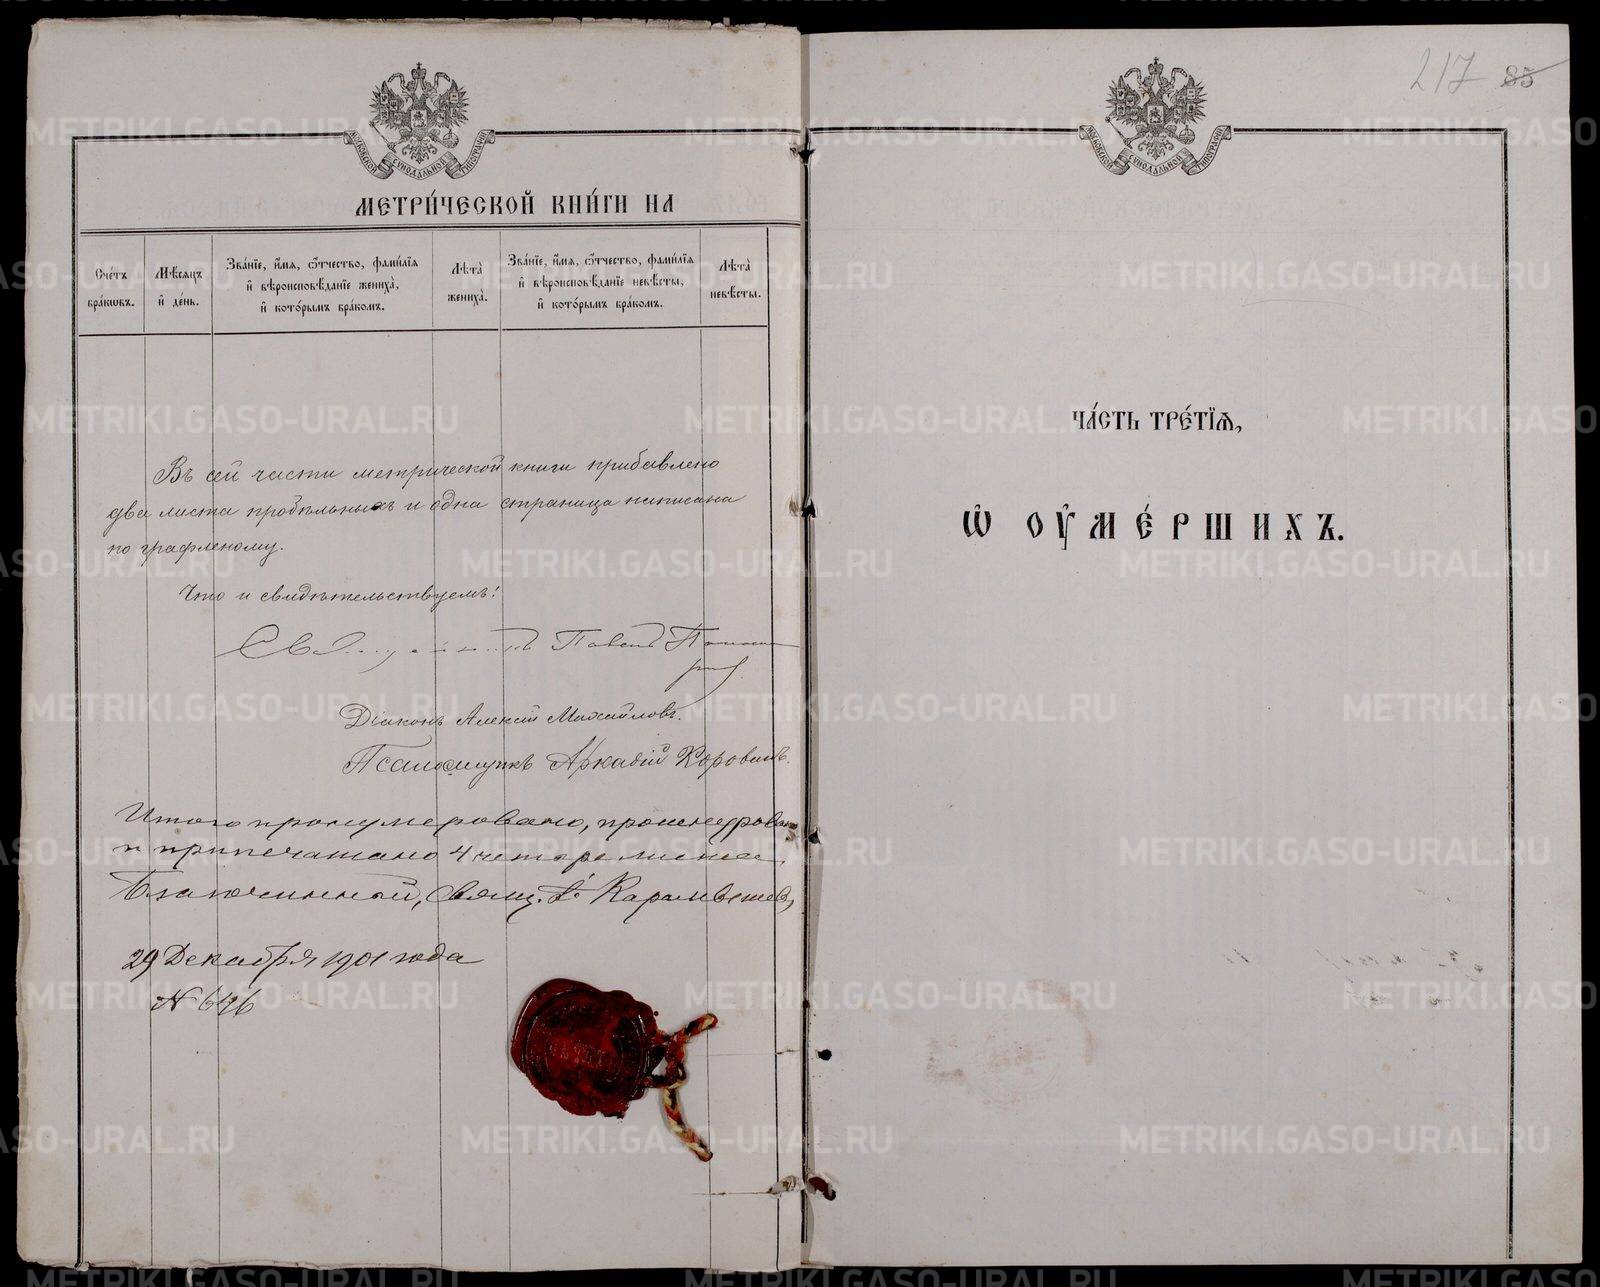 МОСКОВСКОЙ СѴНОДАЛЬНОЙ ТИПОГРАФІИ
МЕТРИ́ЧЕСКОЙ КНИ́ГИ НА
Сче́тъ бра́кѡвъ.
Мѣ́сѧцъ и҆ день.
Зва́нїе, и҆́мѧ, ѻ҆́тчество, фами́лїѧ и҆ вѣроисповѣ́данїе жениха̀, и҆ кото́рымъ бра́комъ.
Лѣта̀ жениха̀.
Зва́нїе, и҆́мѧ, ѻ҆́тчество, фами́лїѧ и҆ вѣроисповѣ́данїе невѣ́сты, и҆ кото́рымъ бра́комъ.
Лѣта̀ невѣ́сты.
Въ сей части метрической книги прибавлено
два листа пробѣльныхъ и одна страница написана
по графленому.
Что и свидѣтельствуемъ:
Павелъ
Діаконъ Алексій Михайловъ.
Псаломщикъ Аркадій Коровинъ.
Итого пронумеровано, прошнурова
и припечатано 4 четыре листа.
Благочинный, Свящ.
29 Декабря 1901 года
№ 646
217 85
МОСКОВСКОЙ СѴНОДАЛЬНОЙ ТИПОГРАФІИ
ЧА́СТЬ ТРЕ́ТЇѦ,
Ѡ҆ ОУ҆МЕ́РШИХЪ.
METRIKI.GASO-URAL.RU